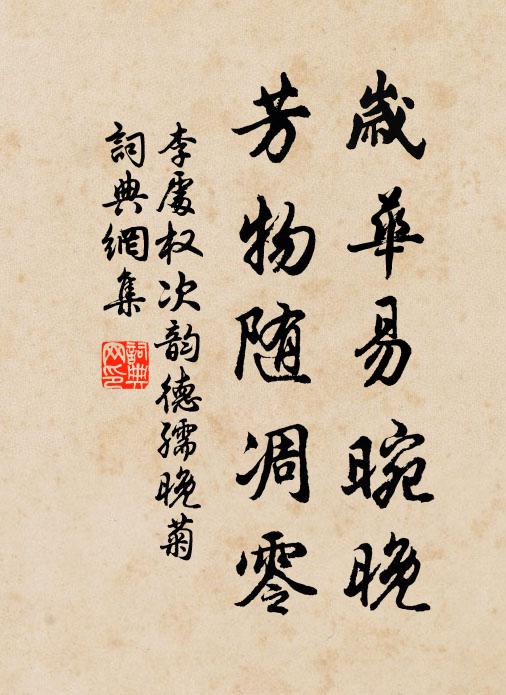 歲華易晼晚
芳物随凋零
李處权次韵德孺晚菊
詞典網集
詞典网印